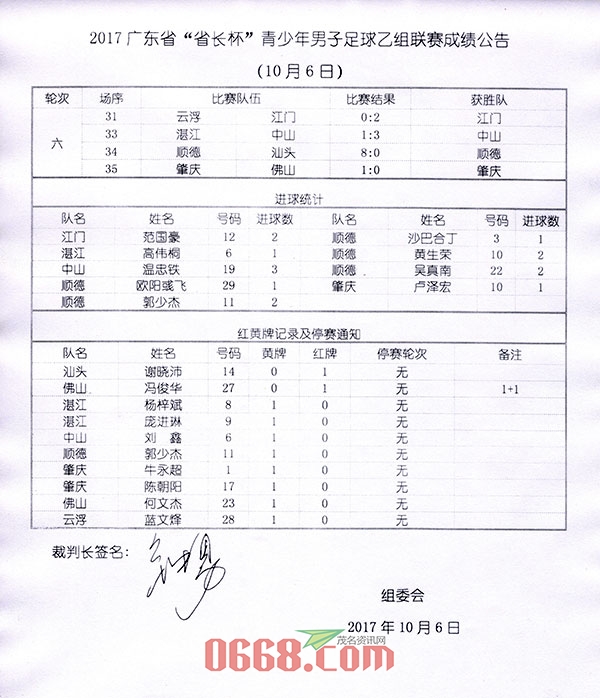 2017广东省“省长杯”青少年男子足球乙组联赛成绩公告
（10月6日）
轮次 场序 比赛队伍 比赛结果 获胜队
六
31 云浮 江门 0:2 江门
33 湛江 中山 1:3 中山
34 顺德 汕头 8:0 顺德
35 肇庆 佛山 1:0 肇庆
进球统计
队名 姓名 号码 进球数 队名 姓名 号码 进球数
江门 范国豪 12 2 顺德 沙巴合丁 3 1
湛江 高伟桐 6 1 顺德 黄生荣 10 2
中山 温忠铁 19 3 顺德 吴真南 22 2
顺德 欧阳彧飞 29 1 肇庆 卢泽宏 10 1
顺德 郭少杰 11 2
红黄牌记录及停赛通知
队名 姓名 号码 黄牌 红牌 停赛轮次 备注
汕头 谢晓沛 14 0 1 无
佛山 冯俊华 27 0 1 无 1+1
湛江 杨梓斌 8 1 0 无
湛江 庞进琳 9 1 0 无
中山 刘鑫 6 1 0 无
顺德 郭少杰 11 1 0 无
肇庆 牛永超 1 1 0 无
肇庆 陈朝阳 17 1 0 无
佛山 何文杰 23 1 0 无
云浮 蓝文烽 28 1 0 无
裁判长签名：
组委会
2017年10月6日
茂名资讯网
0668.com